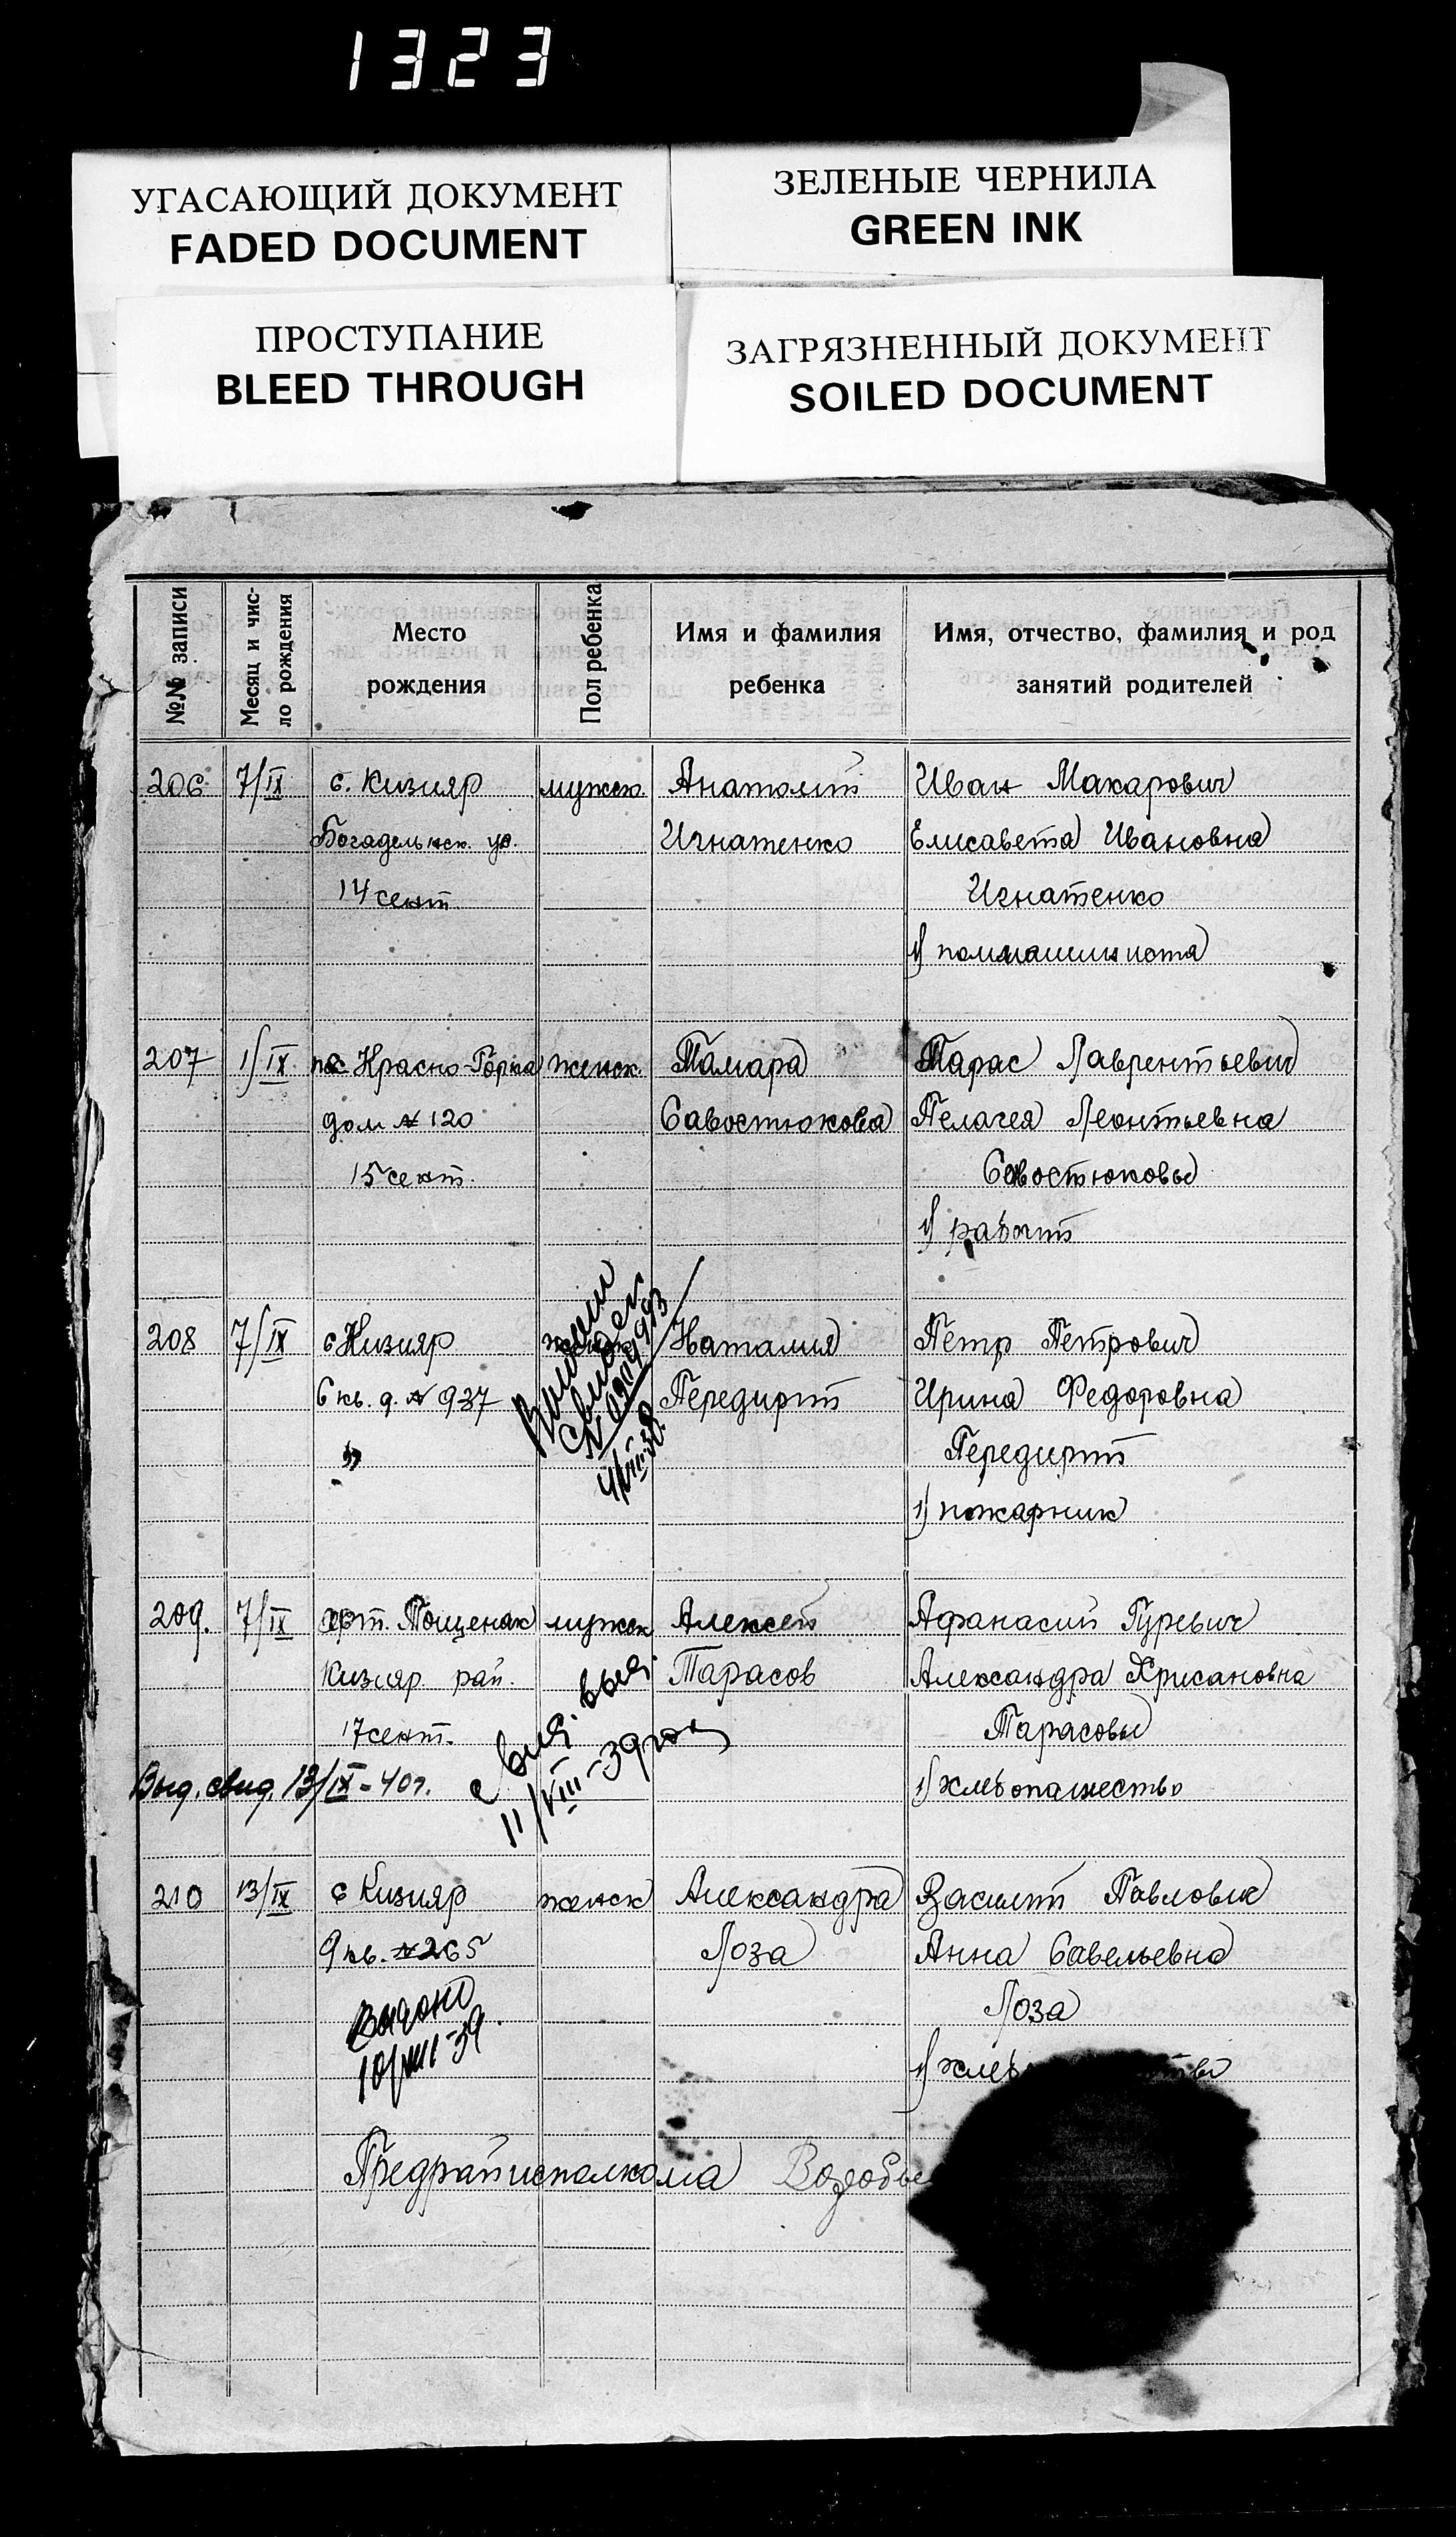 1323
УГАСАЮЩИЙ ДОКУМЕНТ
FADED DOCUMENT
ЗЕЛЕНЫЕ ЧЕРНИЛА
GREEN INK
ПРОСТУПАНИЕ
BLEED THROUGH
ЗАГРЯЗНЕННЫЙ ДОКУМЕНТ
SOILED DOCUMENT
№№ записи
Месяц и чис-
ло рождения
Место
рождения
Пол ребенка
Имя и фамилия
ребенка
Имя, отчество, фамилия и род
занятий родителей
206 7/IX с. Кизияр мужск Анатолий Иван Макарович
Богадельнск. ул. Игнатенко Елисавета Ивановна
14 сент. Игнатенко
1) поммашиниста
207 1/IX пос. Красно-Горка женск. Тамара Тарас Лаврентьевич
дом № 120 Савостюкова Пелагея Леонтьевна
15 сент. Савостюковы
1) рабочий
208 7/IX с Кизияр женск Наталия Петр Петрович
6 кв. д. № 937 Передирий Ирина Федоровна
" Передирий
1) пожарник
4/VIII 39
209. 7/IX Тащенак мужск Алексей Афанасий Гурьевич
Кизияр. рай. Тарасов Александра Хрисановна
17 сент. Тарасовы
Выд. свид. 13/IX-40г. 1) хлебопашество
свид. выд.
11/VIII-39 год
210 13/IX с Кизияр женск Александра Василий Павлович
9 кв. № 265 Лоза Анна Савельевна
Лоза
Выдано
10/VIII-39.
Предрайисполкома